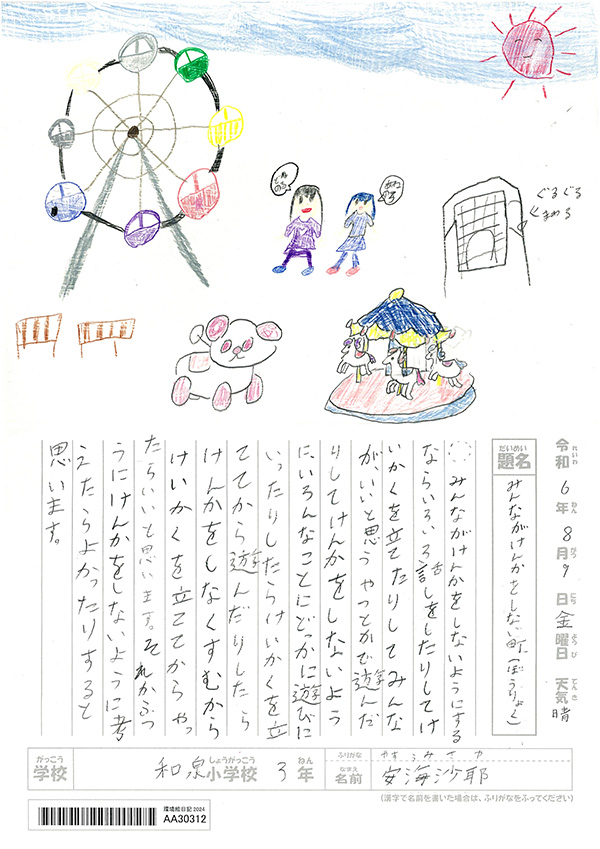 ぐるぐる
まわる
令和6年8月9日金曜日 天気晴
れいわ ねん がつ にち ようび てんき
だいめい
題名 みんながけんかをしない町(ぼうりょく)
みんながけんかをしないようにする
ならいろいろ話しをしたりしてけ
いかくを立てたりしてみんな
が、いいと思うやつとかで遊んだ
りしてけんかをしないよう
に、いろんなことにどっかに遊びに
いったりしたらけいかくを立
ててから遊んだりしたら
けんかをしなくすむから
けいかくを立ててからやっ
たらいいと思います。それかふつ
うにけんかをしないように考
えたらよかったりすると
思います。
がっこう しょうがっこう ねん ふりがな やすうみ さや
学校 和泉小学校 3年 なまえ 名前 安海沙耶
(漢字で名前を書いた場合は、ふりがなをふってください)
環境絵日記2024
AA30312